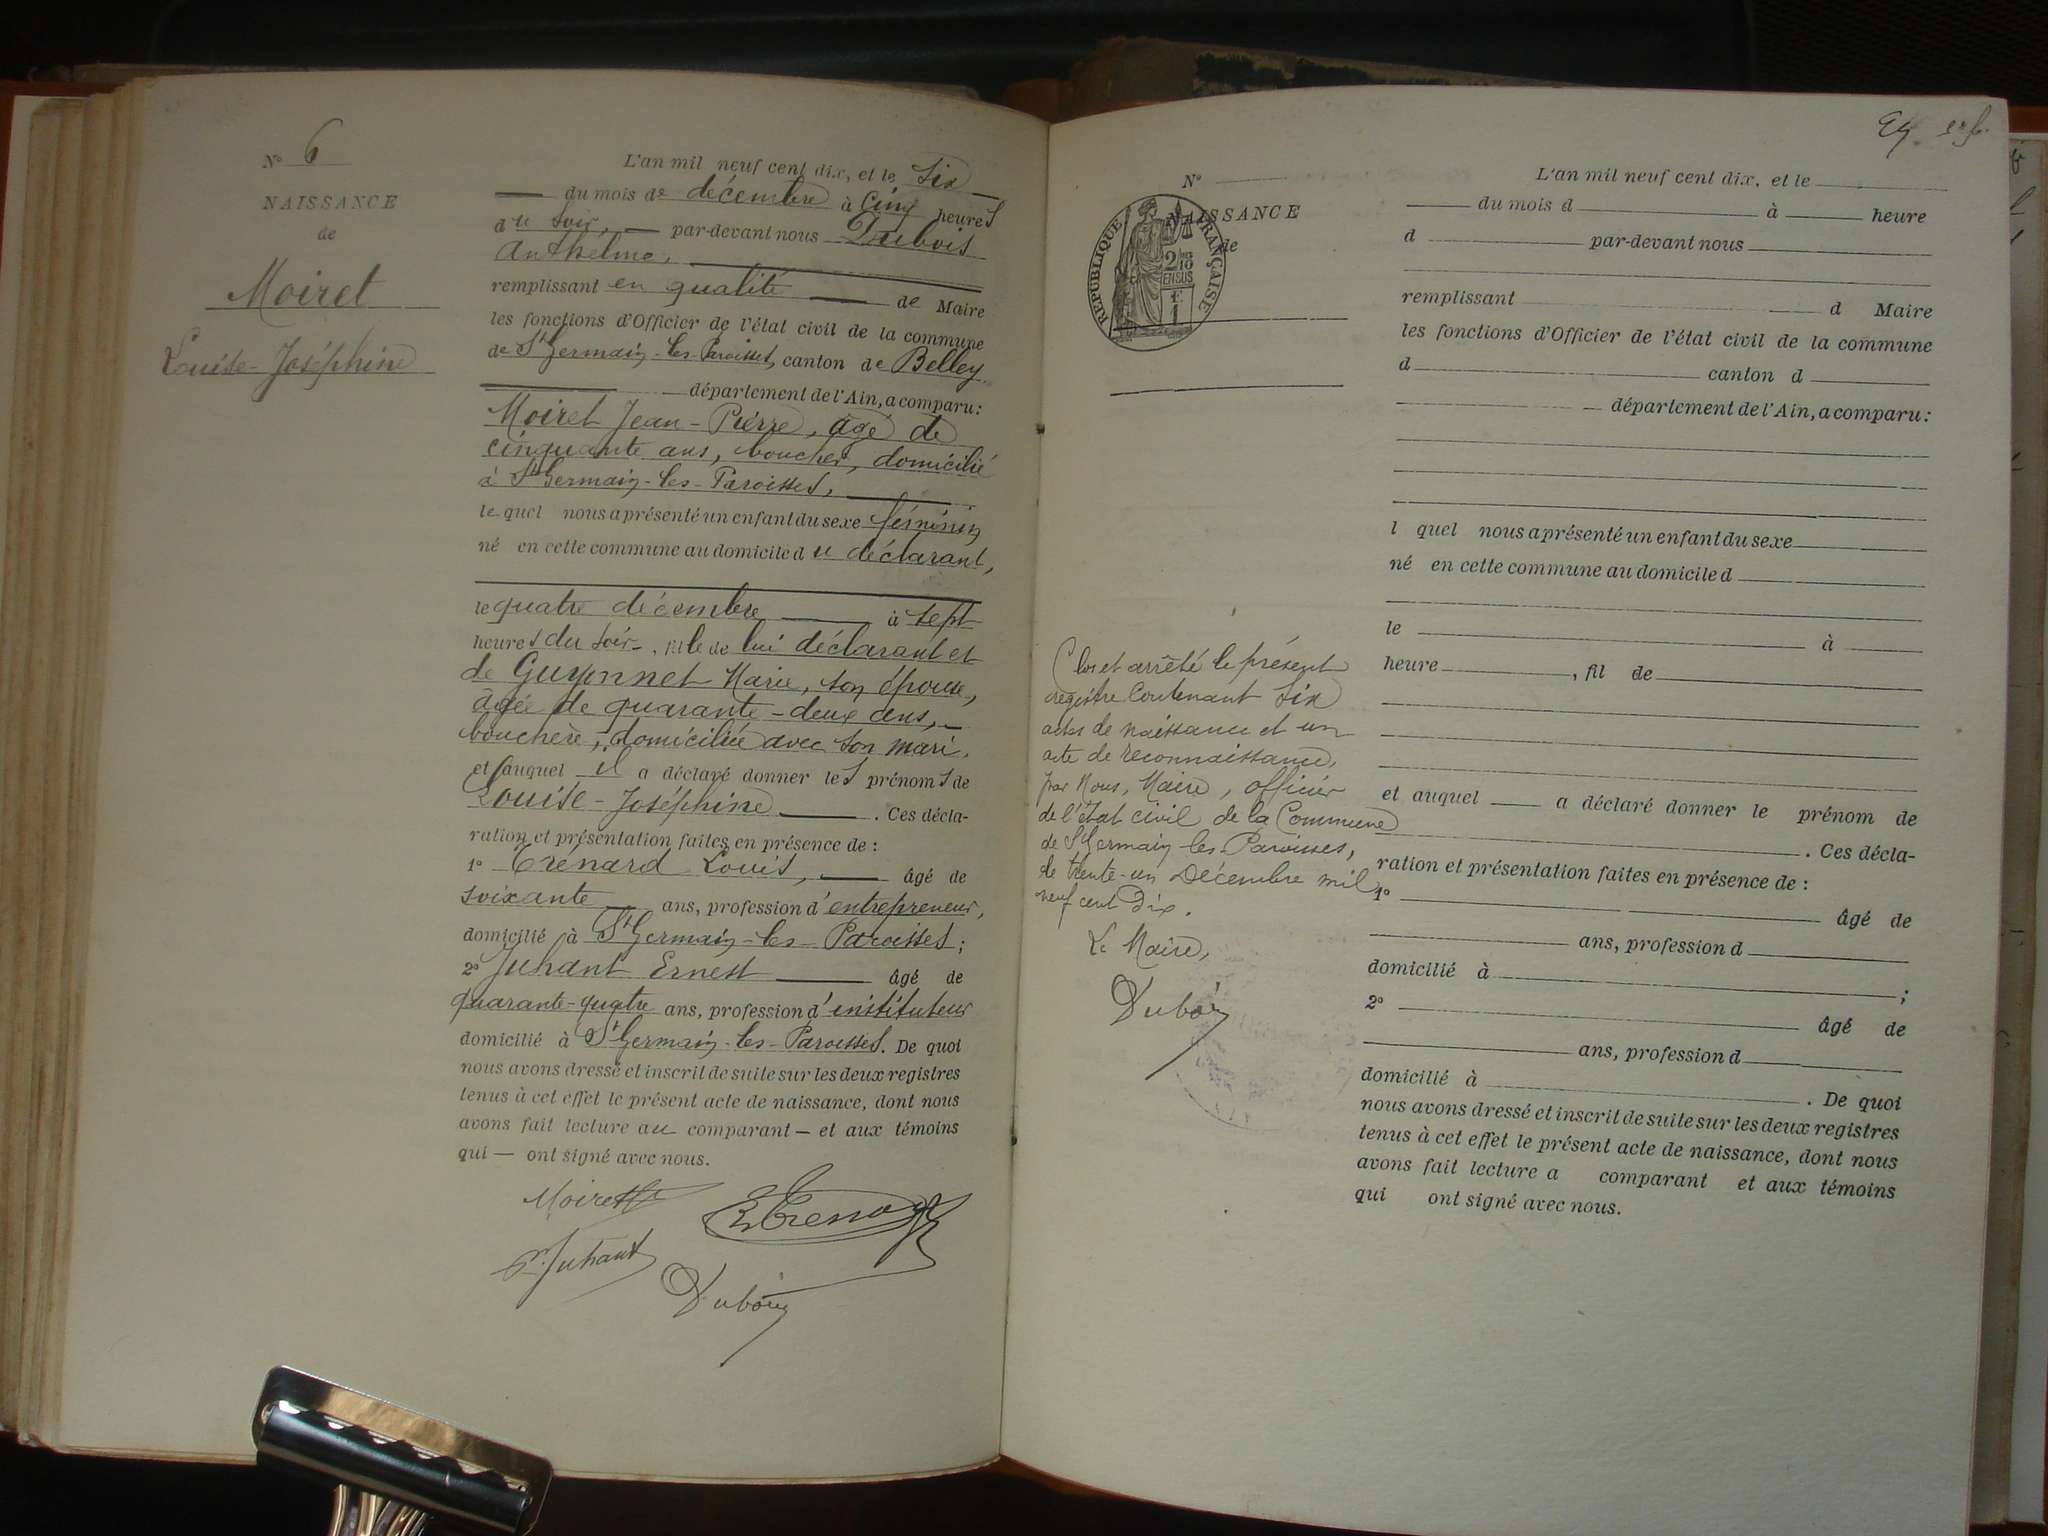 N° 6
NAISSANCE
de
Moiret
Louise-Joséphine
L'an mil neuf cent dix, et le six
du mois de décembre à cinq heures
du soir, par-devant nous Dubois
Anthelme,
remplissant en qualité de Maire
les fonctions d'Officier de l'état civil de la commune
de St Germain-les-Paroisses, canton de Belley
département de l'Ain, a comparu:
Moiret Jean-Pierre, âgé de
cinquante ans, boucher, domicilié
à St Germain-les-Paroisses,
lequel nous a présenté un enfant du sexe féminin
né en cette commune au domicile du déclarant,
le quatre décembre à sept
heures du soir, fille de lui déclarant et
de Guyonnet Marie, son épouse,
âgée de quarante-deux ans,
bouchère, domiciliée avec son mari,
et auquel il a déclaré donner les prénoms de
Louise-Joséphine. Ces décla-
ration et présentation faites en présence de :
1° Trénard Louis, âgé de
soixante ans, profession d'entrepreneur,
domicilié à St Germain-les-Paroisses;
2° Juhant Ernest âgé de
quarante-quatre ans, profession d'instituteur
domicilié à St Germain-les-Paroisses. De quoi
nous avons dressé et inscrit de suite sur les deux registres
tenus à cet effet le présent acte de naissance, dont nous
avons fait lecture au comparant — et aux témoins
qui — ont signé avec nous.
Moiret
Juhant
Dubois
N°
NAISSANCE
de
REPUBLIQUE FRANÇAISE
Clos et arrêté le présent
registre contenant six
actes de naissance et un
acte de reconnaissance,
par Nous, Maire, officier
de l'état civil de la Commune
de St Germain les Paroisses,
le trente-un Décembre mil
neuf cent dix.
Le Maire,
Dubois
L'an mil neuf cent dix, et le
du mois d à heure
d par-devant nous
remplissant d Maire
les fonctions d'Officier de l'état civil de la commune
d canton d
département de l'Ain, a comparu:
l quel nous a présenté un enfant du sexe
né en cette commune au domicile d
le à
heure , fil de
et auquel a déclaré donner le prénom de
. Ces décla-
ration et présentation faites en présence de :
1° âgé de
ans, profession d
domicilié à ;
2° âgé de
ans, profession d
domicilié à . De quoi
nous avons dressé et inscrit de suite sur les deux registres
tenus à cet effet le présent acte de naissance, dont nous
avons fait lecture a comparant et aux témoins
qui ont signé avec nous.